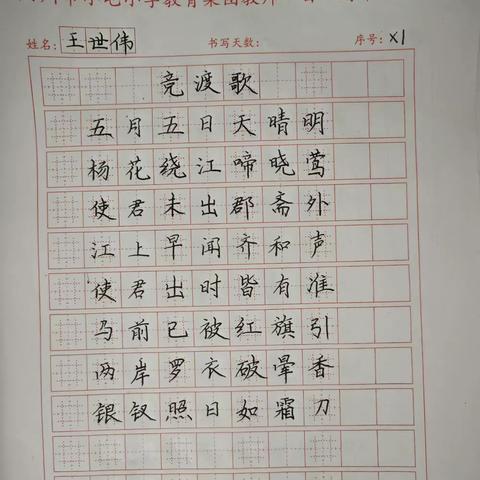 姓名: 王世伟 书写天数: 序号: X1
竞渡歌
五月五日天晴明
杨花绕江啼晓莺
使君未出郡斋外
江上早闻齐和声
使君出时皆有准
马前已被红旗引
两岸罗衣破晕香
银钗照日如霜刀